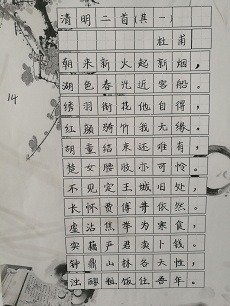 清明二首(其一)
杜甫
朝来新火起新烟，
湖色春光近客船。
绣羽衔花他自得，
红颜骑竹我无缘。
胡童结束还难有，
楚女腰肢亦可怜。
不见定王城旧处，
长怀贾傅井依然。
虚沾焦举为寒食，
实藉严君卖卜钱。
钟鼎山林各天性，
浊醪粗饭任吾年。
14